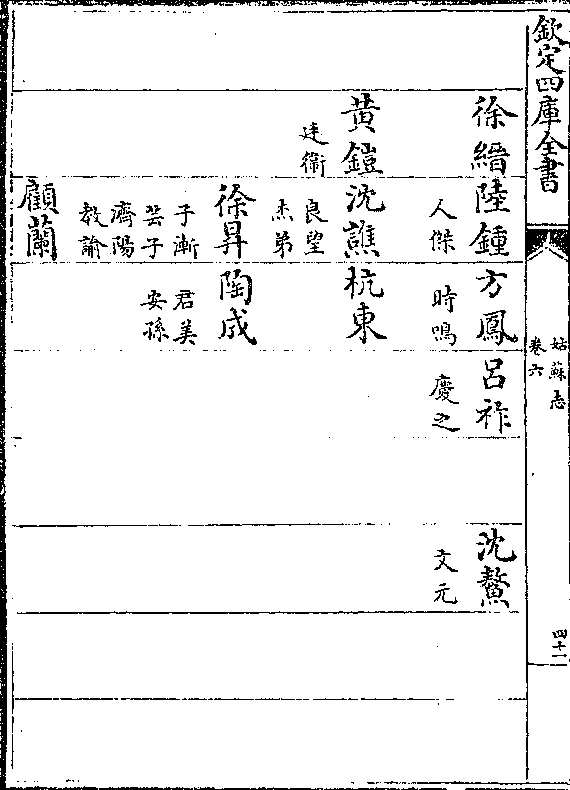 欽定四庫全書
姑蘇志
卷六
四十一
徐縉
黃鎧
廷衛
陸鍾
人傑
沈譙
良望
杰弟
徐昇
子漸
芸子
濟陽
教諭
顧蘭
方鳳
時鳴
杭東
陶成
君美
安孫
呂祚
慶之
沈鰲
文元